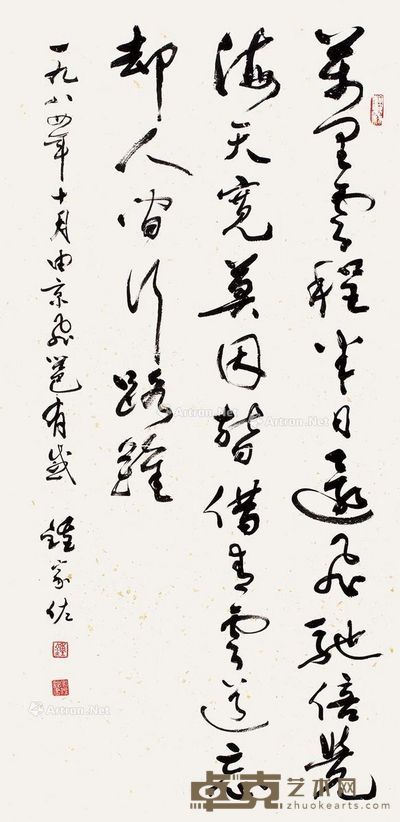 萬里雲程半日還飛馳倍覺
海天寬莫因暫借青雲道忘
却人間行路難
一九八四年十月由京飛邕有感 鍾家佐
Artron.Net
Artron.Net
Artron.Net
卓克艺术网
zhuokearts.com